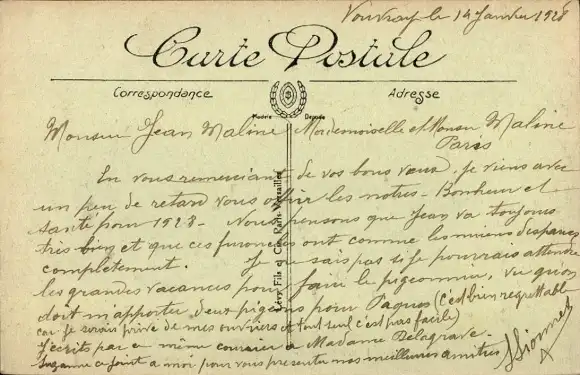 Vouvray le 14 Janvier 1928
Carte Postale
Correspondance
Adresse
Modèle Déposé
Monsieur Jean Maline, Mademoiselle et Monsieur Maline
Paris
En vous remerciant de vos bons vœux. je viens avec
un peu de retard vous offrir les notres - Bonheur et
santé pour 1928 - Nous pensons que Jean va toujours
très bien et que ces furoncles ont comme les miens disparus
complètement. Je ne sais pas si je pourrais attendre
les grandes vacances pour faire le pigeonnier, vu qu'on
doit m'apporter deux pigeons pour Paques (c'est bien regrettable
car je serais privé de mes ouvriers et tout seul c'est pas facile)
J'écrits par ce même courrier à Madame Delagrave.
Suzanne se joint a moi pour vous présenter nos meilleures amitiés
Lévy Fils et Cie, Paris-Versailles